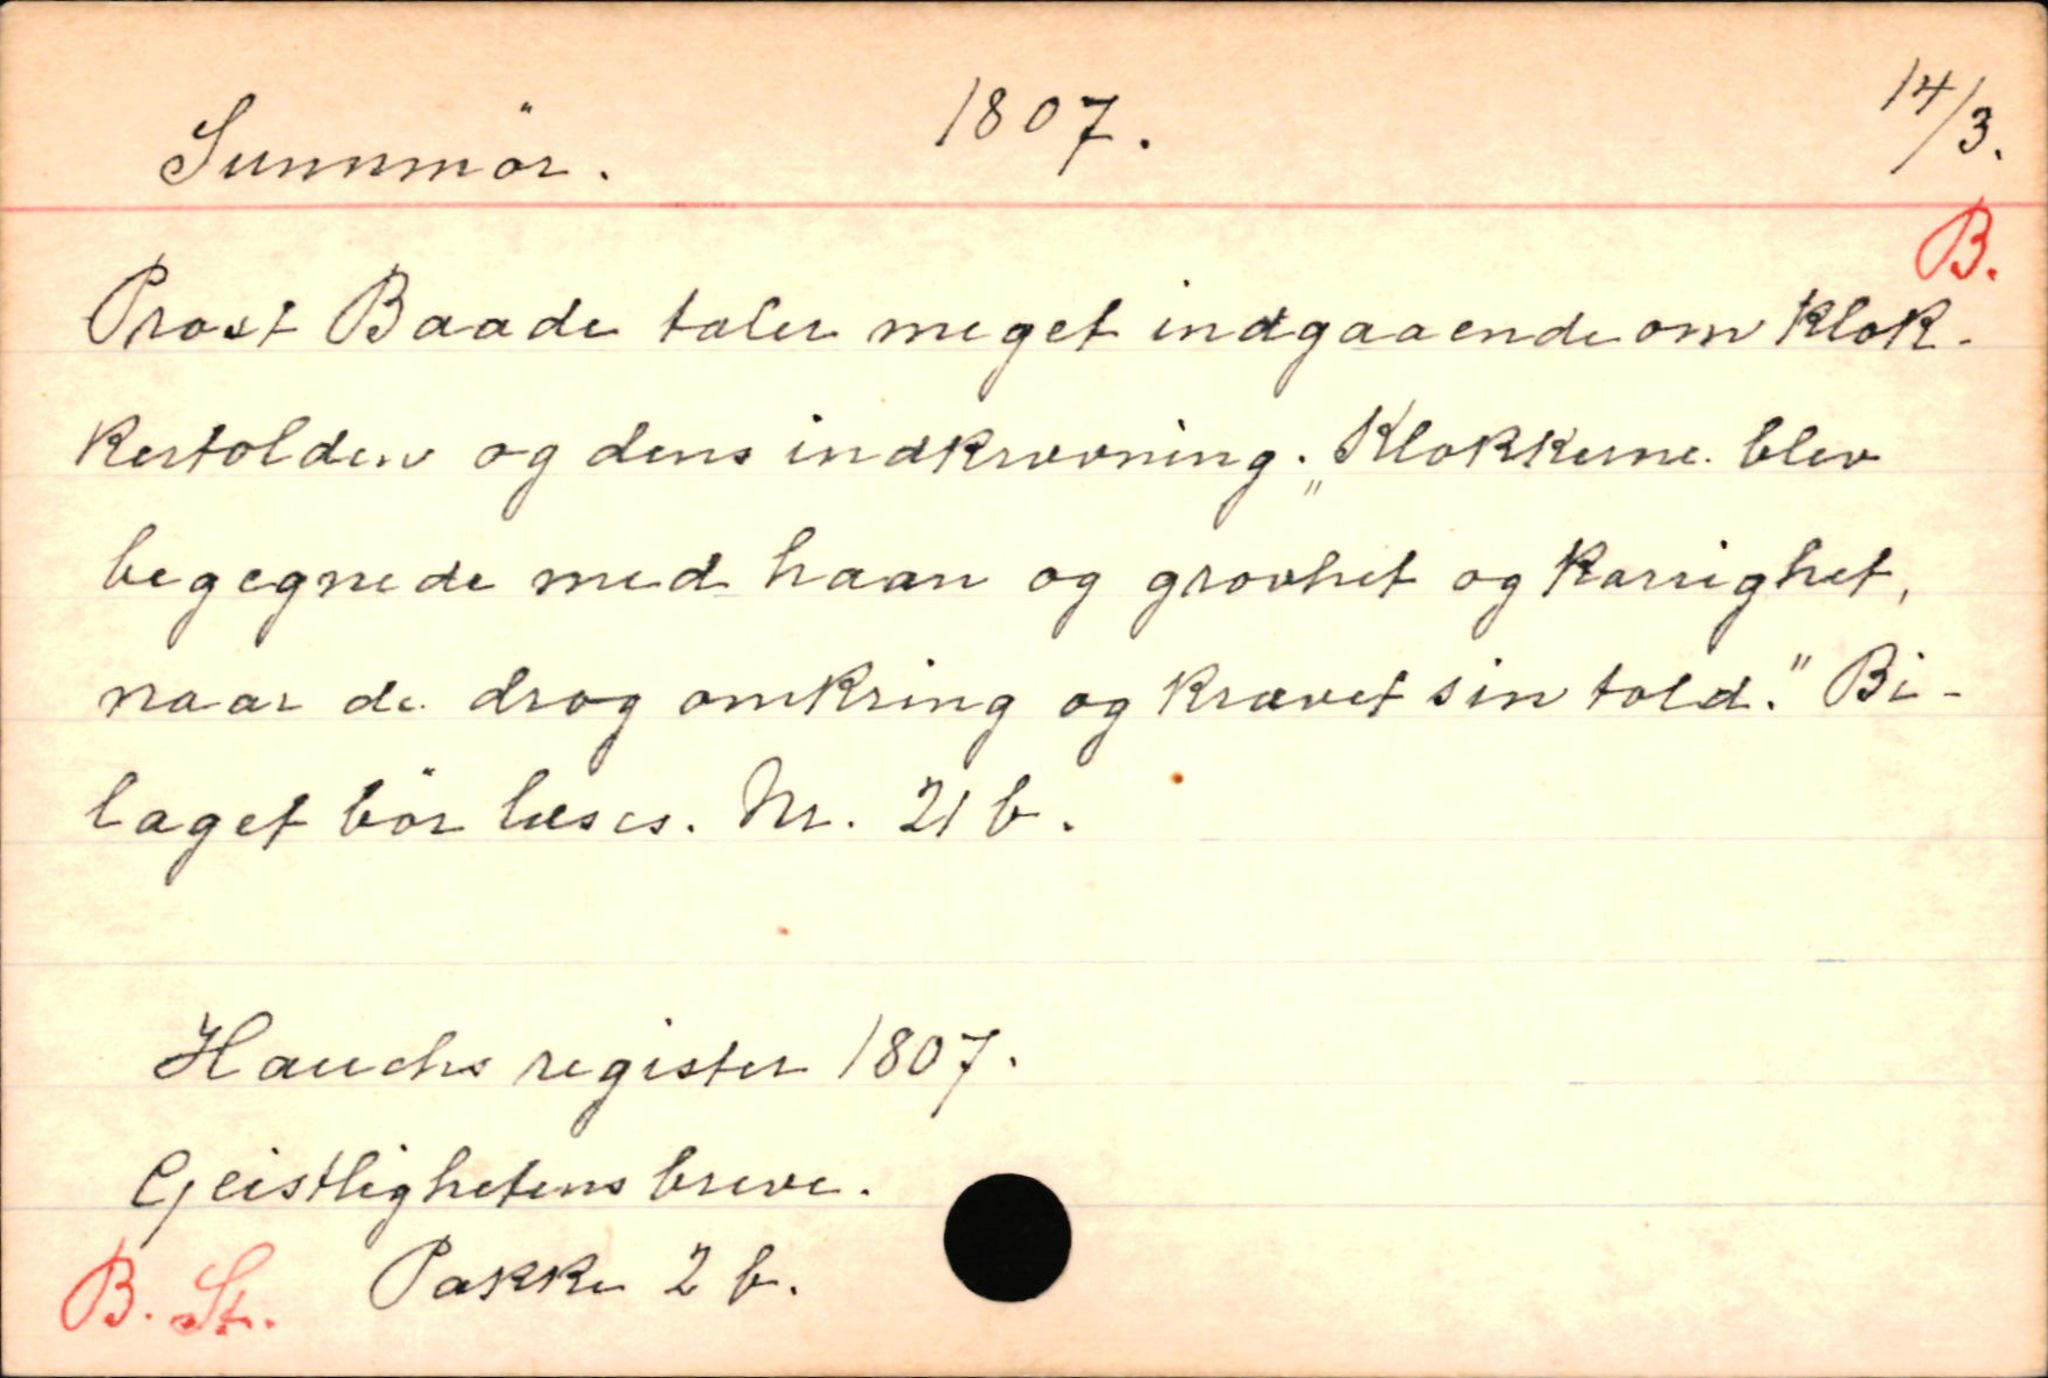 Sunnmör. 1807. 14/3.
B.
Prost Baade taler meget indgaaende om klok-
kertolden og dens indkrævning. „Klokkerne blev
begegnede med haan og grovhet og karrighet,
naar de drog omkring og krævet sin told." Bi-
laget bör læses. Nr. 21 b.
Hauchs register 1807.
Geistlighetens breve.
B. St. Pakke 2 b.